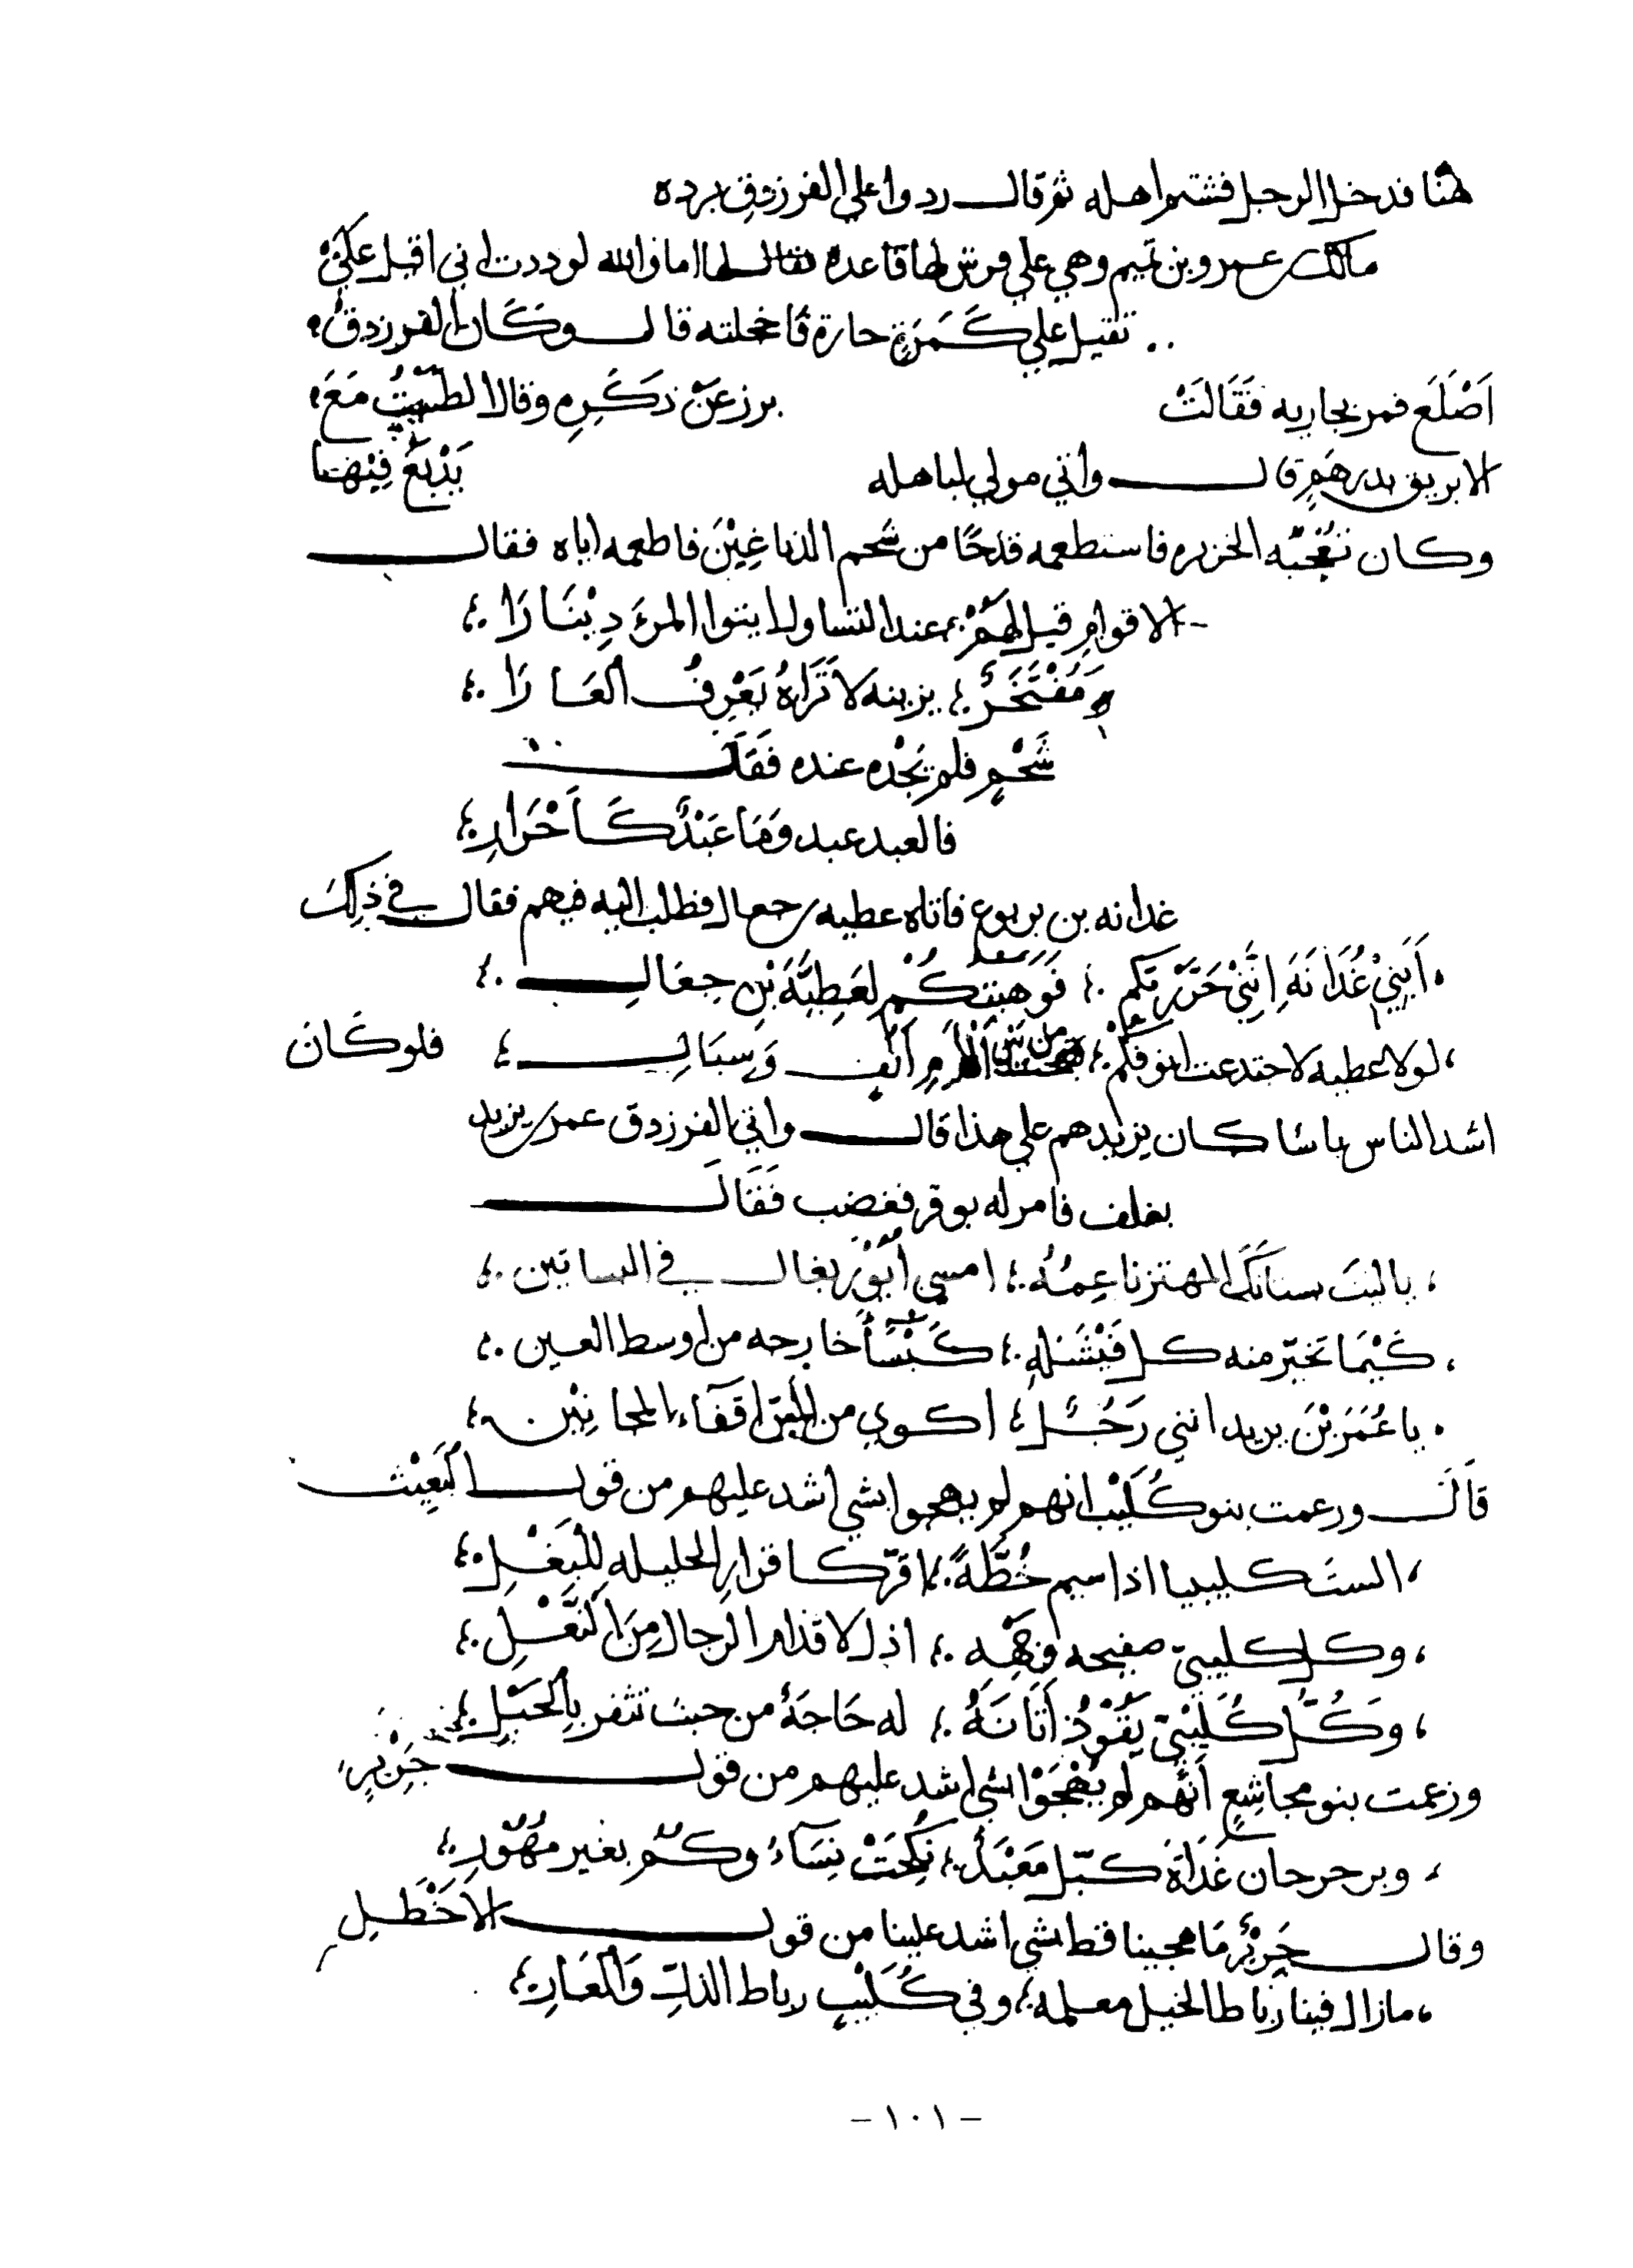 هنا فدخل الرجل فشتم اهله ثم قال ردوا علي الفرزدق برده
مالك عمرو بن تميم وهي علي فرش لها قاعده فقال لها اما والله لوددت اني اقبل عليَّ
تقيل علي كَمَرَةٍ حارة فاخجلته قال وكَان الفرزدق
اَصْلَع فمر بجاريه فَقَالَتْ برز عَنْ ذكَرِهِ وقال الطسْتُ مَعَ
الابريق بدرهَمٍ قال واتي مولي لباهله يَذْبَحُ فِيْهَا
وكان تُعْجبُه الخزيره فاستطعمه قدحًا من شحم الدماغِيْنَ فاطعمه اياه فقال
الاقوامِ قيل لهَمُ عند التساول ايتوا المرءَ دِيْنَارَا
وَمُفْتَخَرٌ يزينه لا تَرَاهُ يَعْرِفُ العَارَا
شَحْمٍ فلم يَجْده عنده فَقَالَ
فالعبد عبد وَمَا عَبْدٌ كَاَحْرَارِ
غدانه بن يربوع فاتاه عطيه جعال فطلب اليه فيهم فقال في ذلِكَ
اَبَنِيْ غُدَانَةَ اِنَّنِيْ حَرَّرْتكم فَوَهبتكُمْ لِعَطِيَّةَ بْنِ جِعَالِ
لولا عطيه لاجتدعت انوفكم من بين اَلأَمِ آنفٍ وَسِبَالِ فلو كَانَ
اشد الناس باسًا كان يزيدهم علي هذا قال واتي الفرزدق عمر يزيد
بغلف فامر له بوقر فغضب فَقَالَ
ياليتَ بستانَكَ المهتز ناعِمُهُ امسي اُيُوْرَ بغال في البساتين
كَيْمَا تخيّر منه كل فَيْشَلهٍ كَبْسَاً خارجه من اوسط العين
يا عُمَرَ بْنَ يزيد انني رَجُلٌ اكوي من الَّ اَقفَاءَ المجانِيْن
قَالَ وزعمت بنو كُلَيْب انهم لم يهجوا بشي اشد عليهم من قول الْبَعِيْث
الستَ كليبيا اذا سيم خُطَّةً اقرّ كاقرار الحليله لِلْبَغْلِ
وكل كليبيّ صفيحه وَجْهِهِ اذل لاقدام الرجال مِنَ الْنَّعْلِ
وَكُلُّ كُلَيْبيّ يَقُوْدُ اَتَانَهُ له حَاجَةٌ من حيث تثفر بِالْحَبْلِ
وزعمت بنو مجاشِعٍ اَنَّهم لم يُهْجَوْا بشي اشد عليهم من قول جَرِيْرٍ
وبرحرحان غَدَاةَ كبّل مَعْبَدٌ نُكِحَتْ نِسَاءُ وكُمُ بغير مُهُوْرِ
وقال جَرِيْرٌ مَا هجينا قط بشي اشد علينا من قول الاَخْطَلِ
مازال فينا رباط الخيل معلمه وفي كُلَيْبٍ رباط الذلِّ وَالْعَارِ
- ١٠١ -